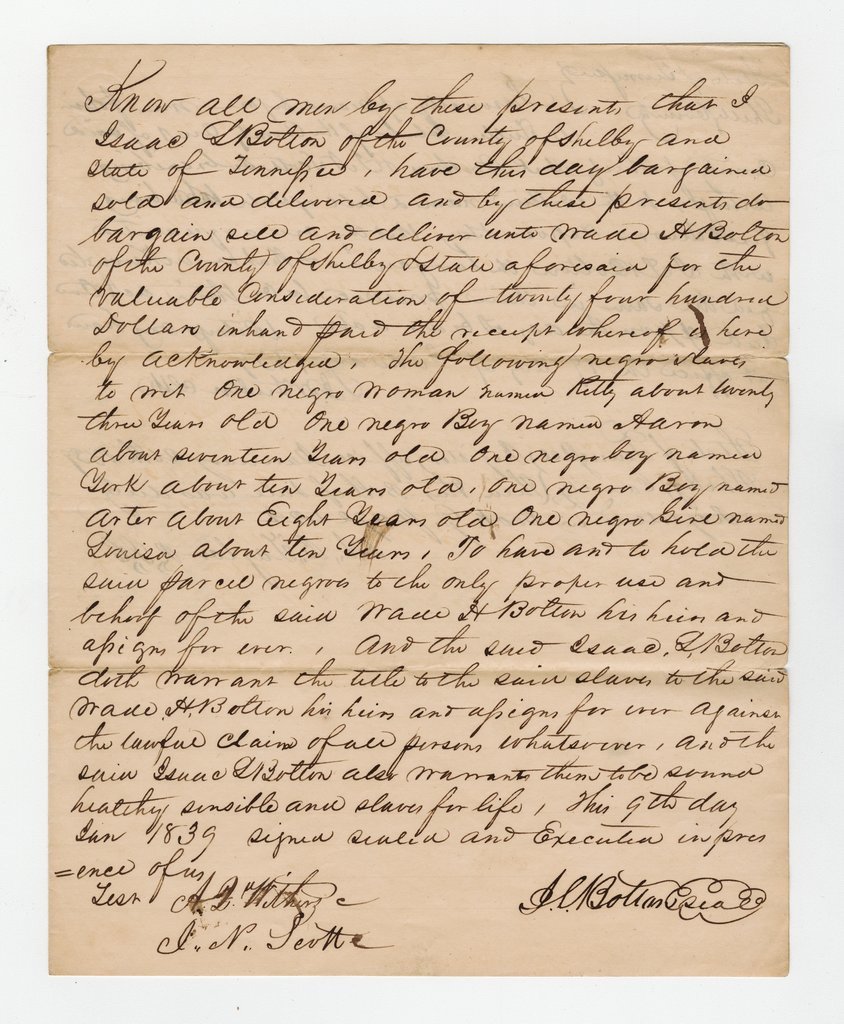 Know all men by these presents that I
Isaac L Bolton of the County of Shelby and
State of Tennessee, have this day bargained
sold and delivered and by these presents do
bargain sell and deliver unto Wade H Bolton
of the County of Shelby & State aforesaid for the
valuable Consideration of twenty four hundred
Dollars in hand paid the receipt whereof is here
by acknowledged, The following negro slaves
to wit One negro woman named Kitty about twenty
three Years old One negro Boy named Aaron
about seventeen Years old One negro boy named
York about ten Years old, One negro Boy named
Arter about Eight Years old One negro Girl named
Louisa about ten Years, To have and to hold the
said parcel negros to the only proper use and
behoof of the said Wade H Bolton his heirs and
assigns for ever., And the said Isaac, L, Bolton
doth warrant the title to the said slaves to the said
Wade, H. Bolton his heirs and assigns for ever against
the lawful claim of all persons whatsoever, and the
said Isaac L Bolton also warrants them to be sound
healthy sensible and slaves for life, This 9th day
Jan 1839 signed sealed and Executed in pres
=ence of us
Test A. D. Withers
I. L. Bolton Seal
J. N. Scott